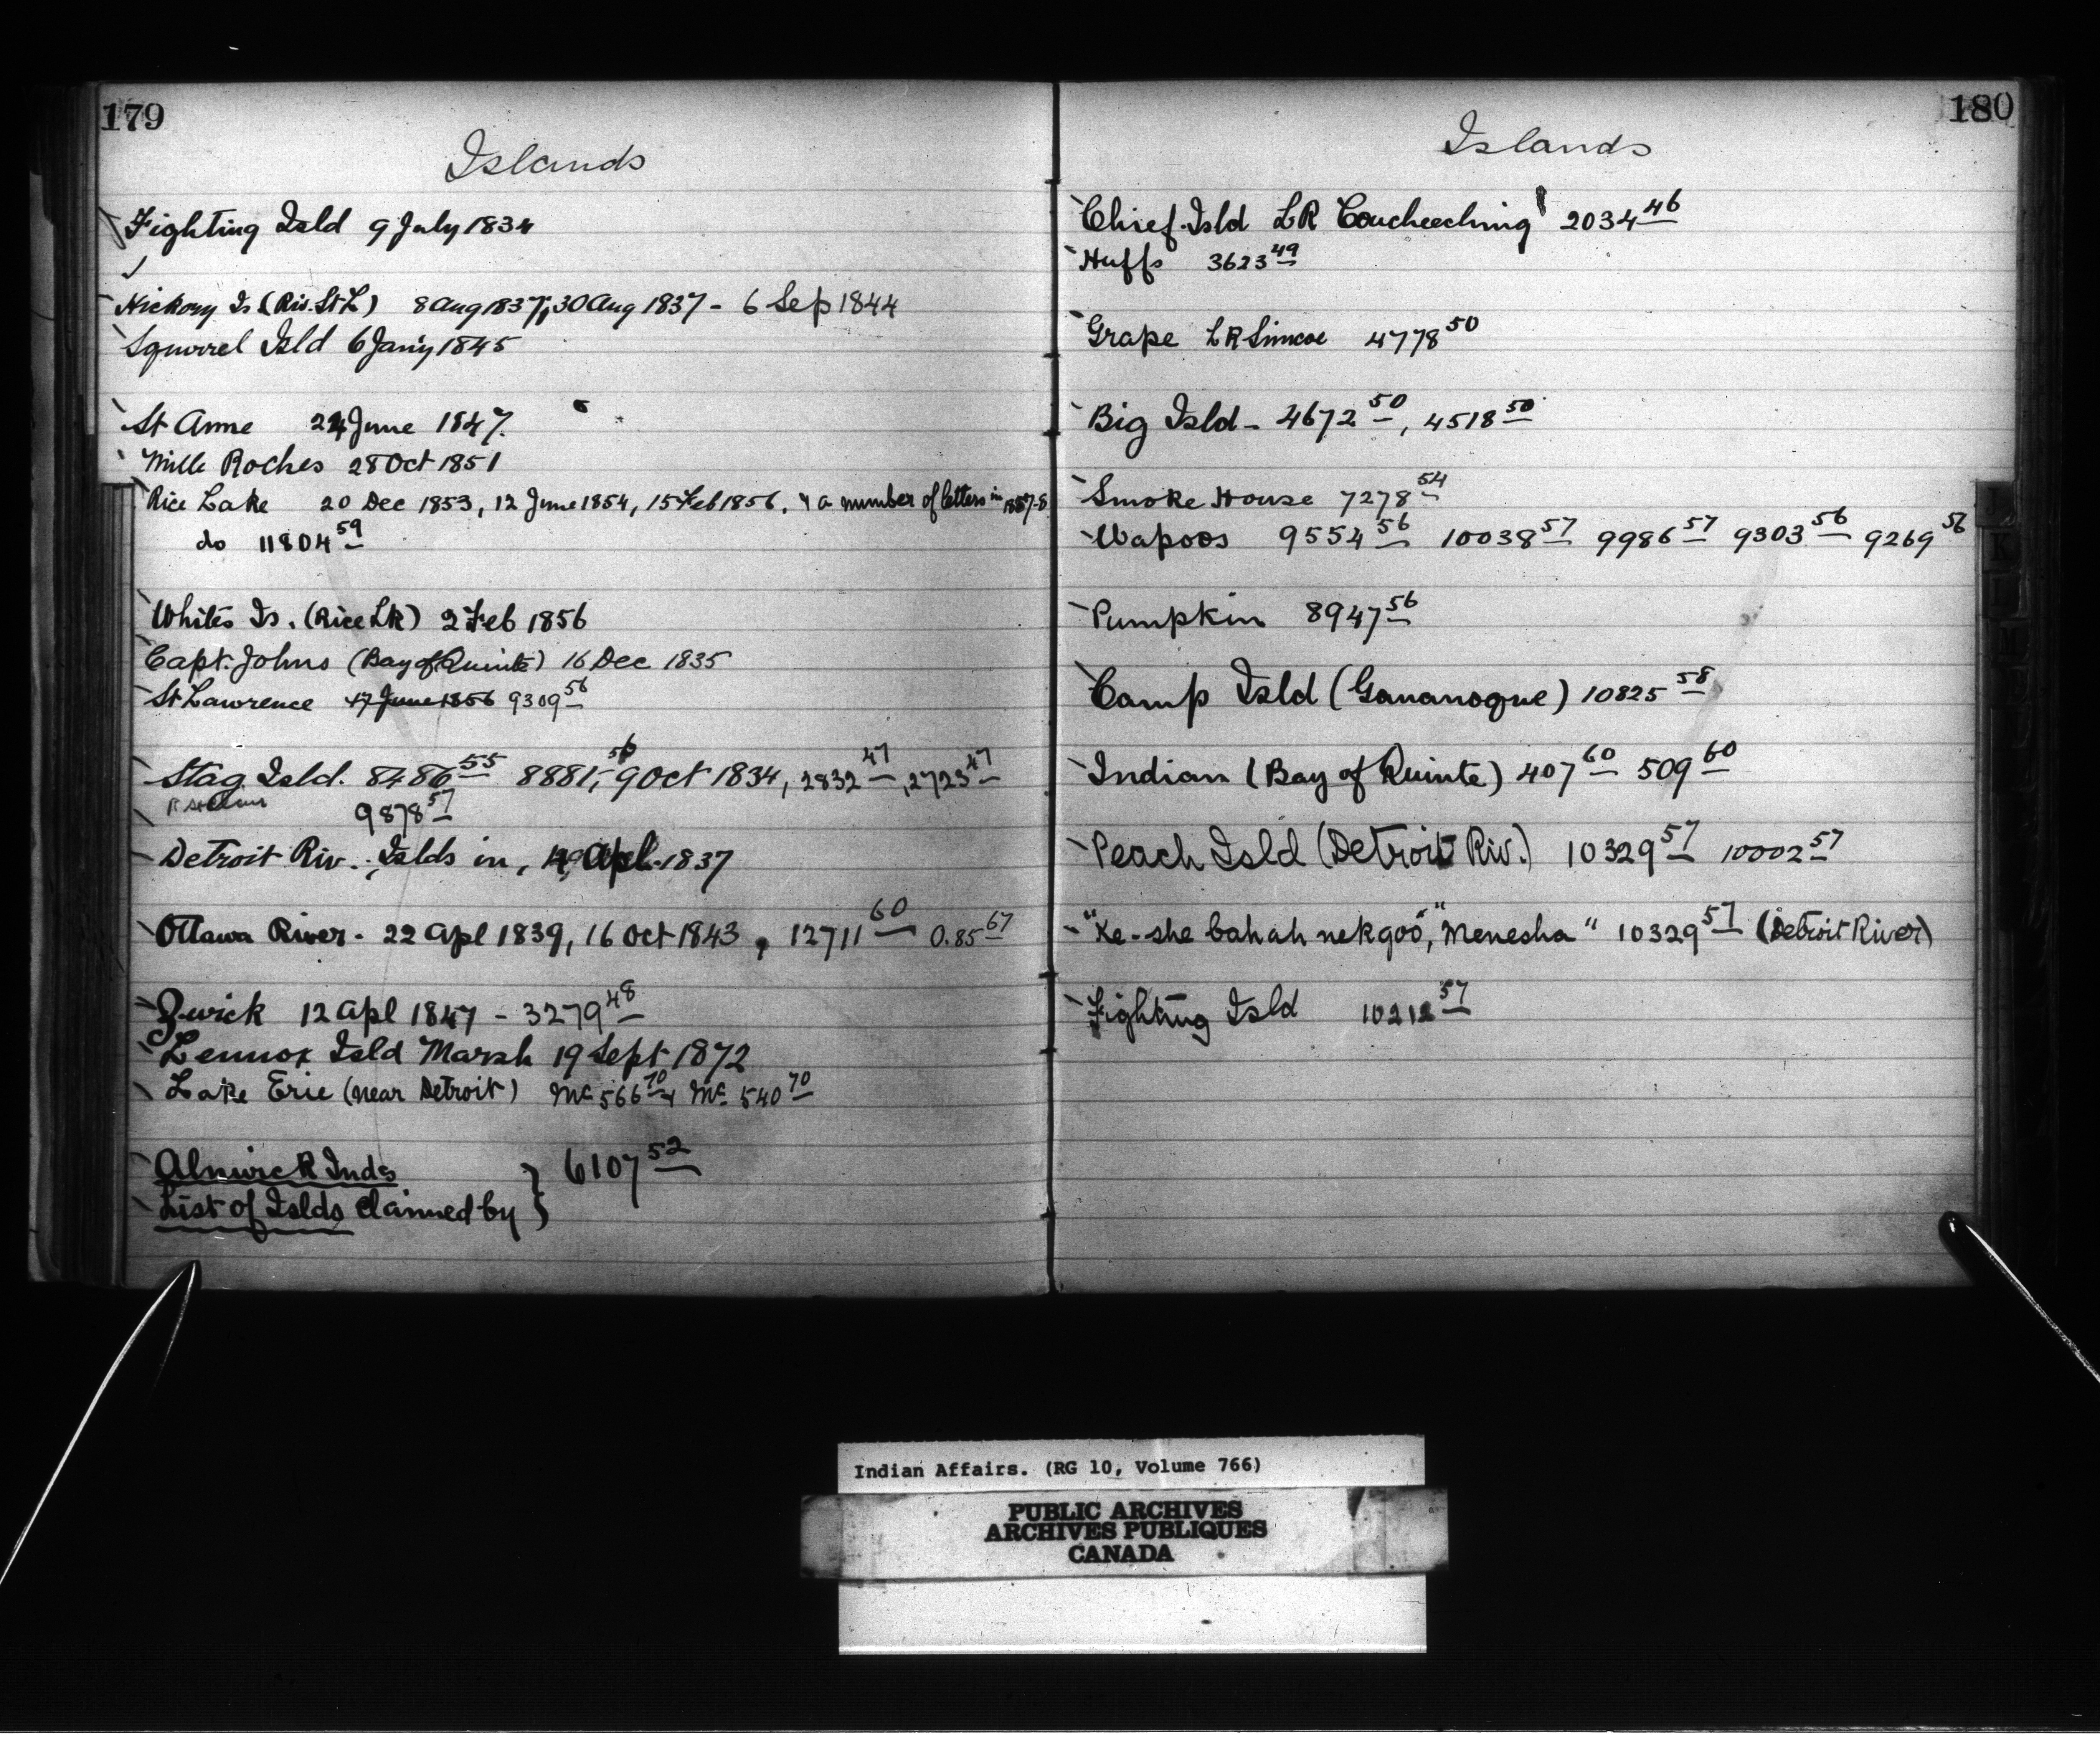 179
Islands
Fighting Isld 9 July 1834
Hickory Is (Riv. St L) 8 Aug 1837, 30 Aug 1837 - 6 Sep 1844
Squirrel Isld 6 Jany 1845
St Anne 24 June 1847.
Mille Roches 28 Oct 1851
Rice Lake 20 Dec 1853, 12 June 1854, 15 Feb 1856, & a number of letters in 1857-8
do 11804 59
Whites Is. (Rice Lk) 2 Feb 1856
Capt. Johns (Bay of Quinte) 16 Dec 1835
St Lawrence 17 June 1856 9309 56
Stag Isld. 8486 55 8881, 56 9 Oct 1834, 2832 47, 2723 47
R St Clair 9878 57
Detroit Riv., Islds in, Apl. 1837
Ottawa River - 22 Apl 1839, 16 Oct 1843, 12711 60 0.85 67
Zwick 12 Apl 1847 - 3279 48
Lennox Isld Marsh 19 Sept 1872
Lake Erie (near Detroit) Mc 566 70 & Mc 540 70
Alnwick Inds
List of Islds claimed by } 6107 52
180
Islands
Chief Isld LR Coucheeching 2034 46
Huffs 3623 49
Grape LR Simcoe 4778 50
Big Isld - 4672 50, 4518 50
Smoke House 7278 54
Wapoos 9554 56 10038 57 9986 57 9303 56 9269 56
Pumpkin 8947 56
Camp Isld (Gananoque) 10825 58
Indian (Bay of Quinte) 407 60 509 60
Peach Isld (Detroit Riv.) 10329 57 10002 57
"Ke-she bah ah nekgoo", "Menesha" 10329 57 (Detroit River)
Fighting Isld 10212 57
Indian Affairs. (RG 10, Volume 766)
PUBLIC ARCHIVES
ARCHIVES PUBLIQUES
CANADA